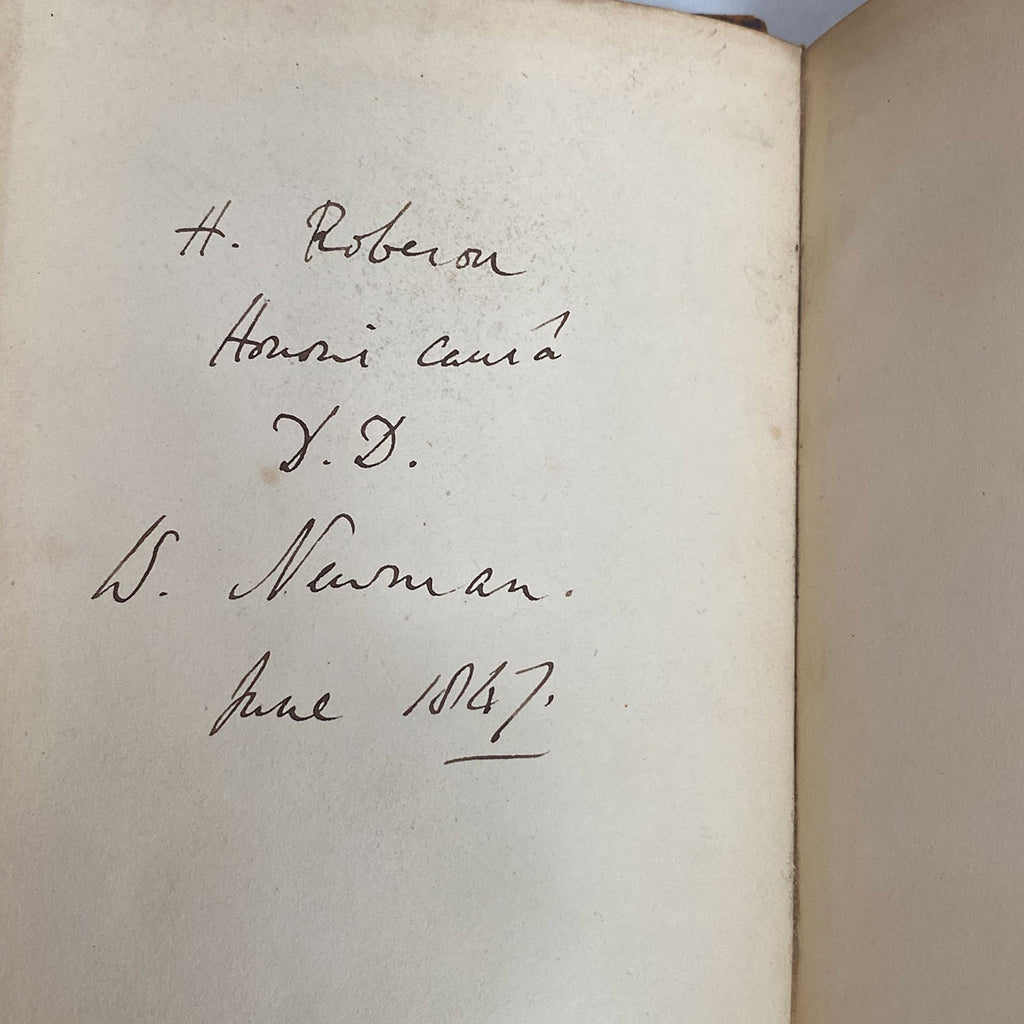 H. Roberon
Honoris causâ
D. D.
W. Newman.
June 1847.